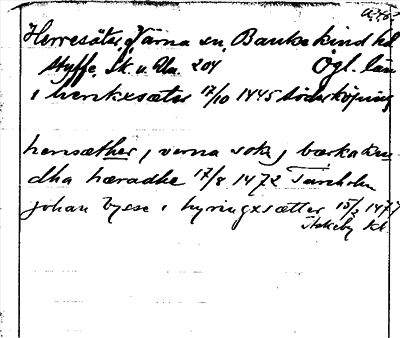 Herresäter, Värna sn, Bankekind hd
Styffe, Sk. u. Un. 204 Ögl. län
i herikxsæter 17/10 1445 Söderköping
hersæther, verna sokn, bærkakin
dha hæradhe 17/8 1472
johan bysse i hyringxsætter 15/2 1477
Stäkeby kh